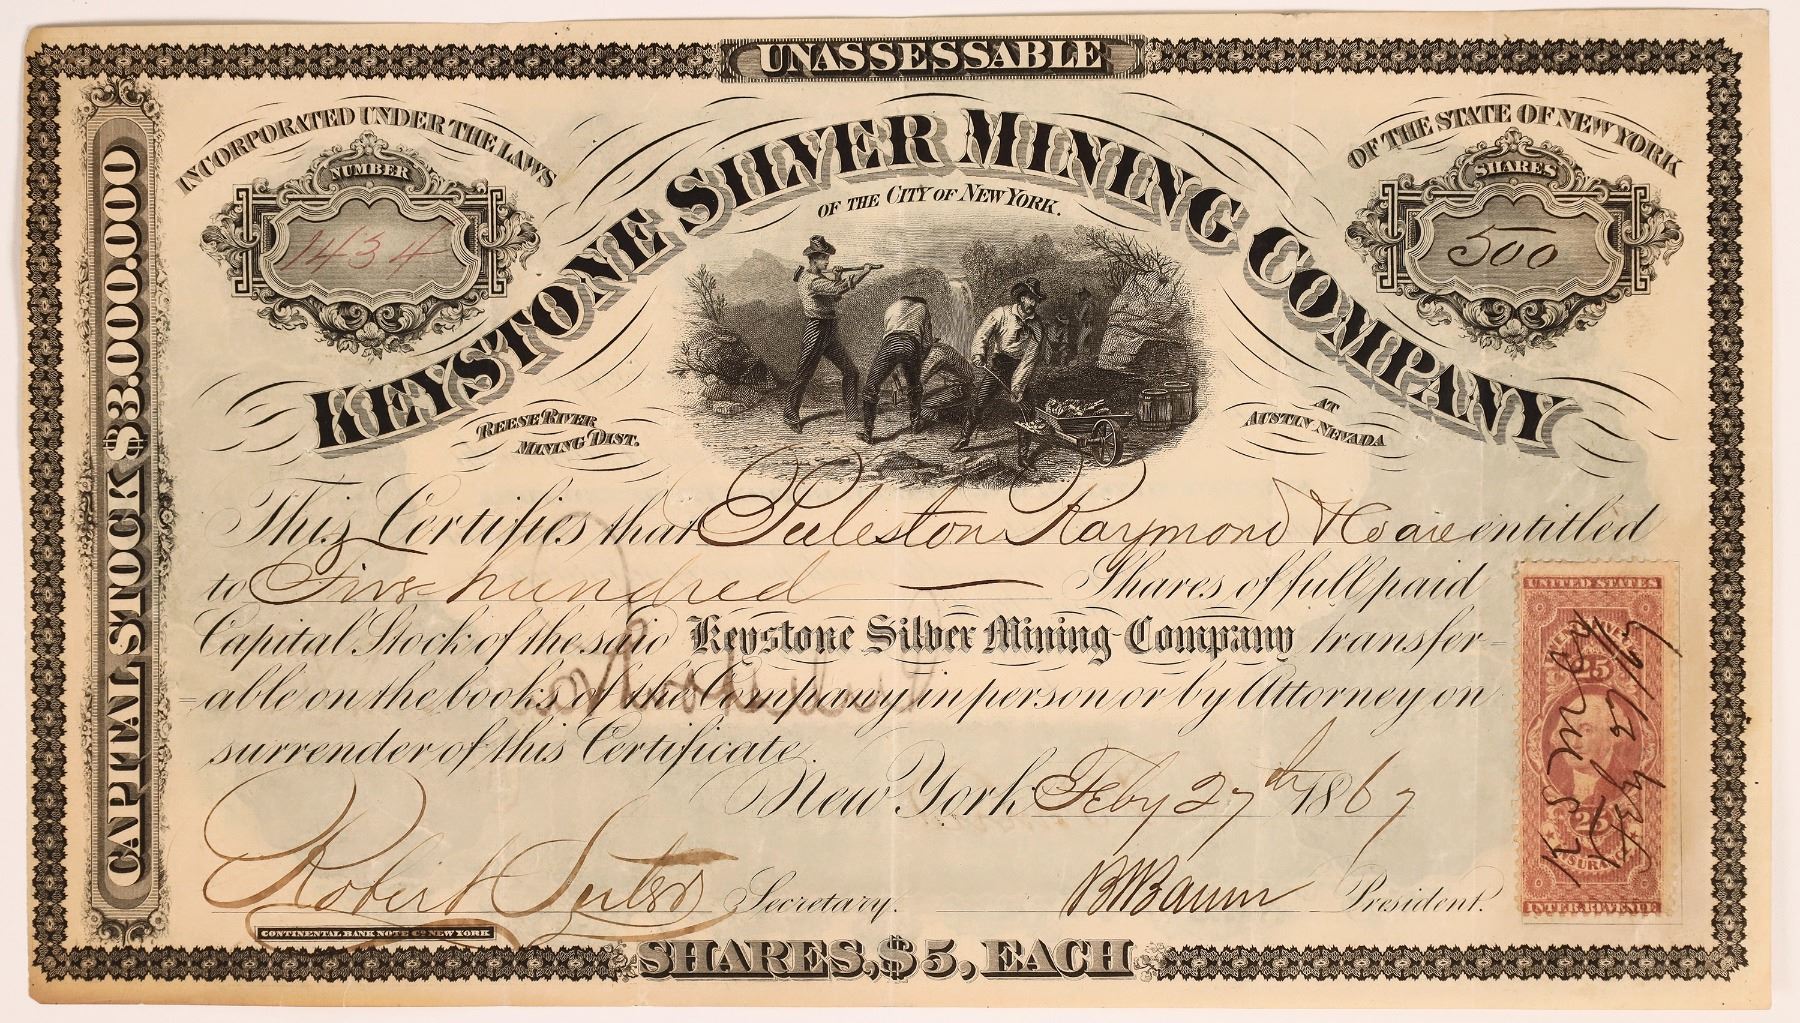 UNASSESSABLE
INCORPORATED UNDER THE LAWS
OF THE STATE OF NEW YORK
NUMBER
1434
SHARES
500
KEYSTONE SILVER MINING COMPANY
OF THE CITY OF NEW YORK.
REESE RIVER
MINING DIST.
AT
AUSTIN NEVADA
CAPITAL STOCK $3.000.000
This Certifies that Puleston Raymond & Co are entitled
to Five hundred Shares of full paid
Capital Stock of the said Keystone Silver Mining Company transfer-
=able on the books of the Company in person or by Attorney on
surrender of this Certificate.
New York Feby 27th 1867
Robert Secretary.
President.
CONTINENTAL BANK NOTE CO. NEW YORK
SHARES, $5, EACH
UNITED STATES
25
25
INSURANCE
INTER. REVENUE